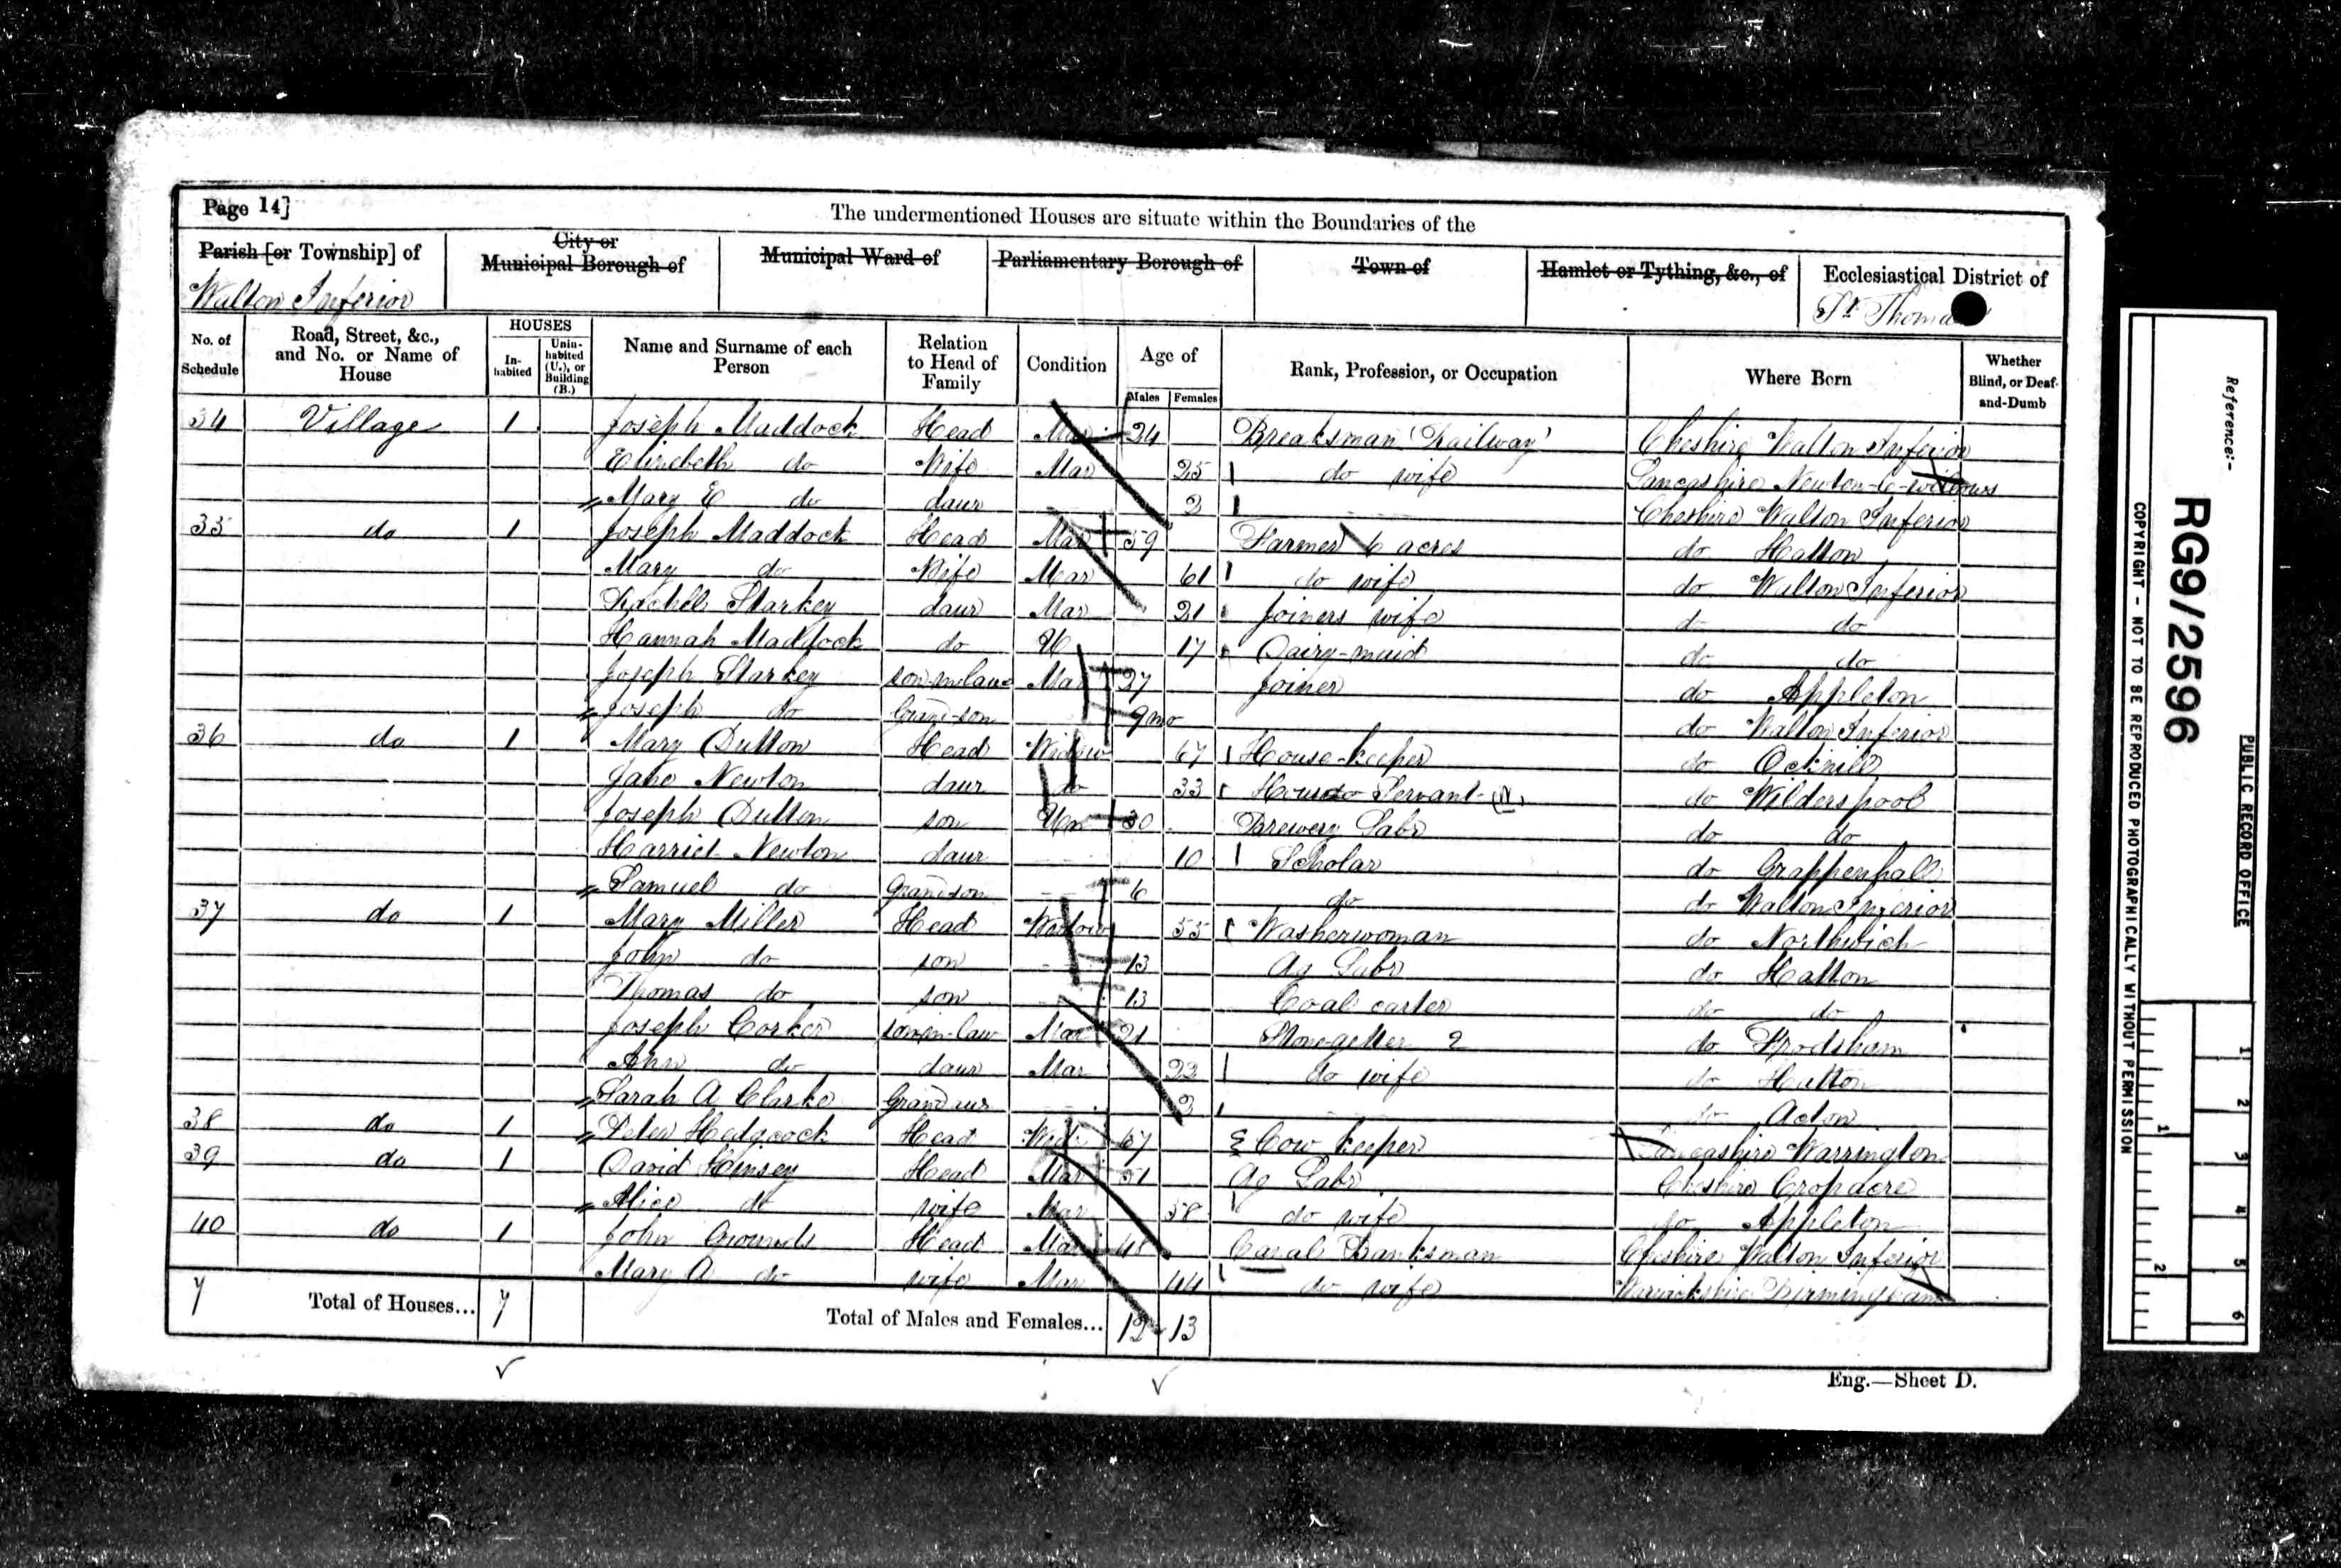 Page 14]
The undermentioned Houses are situate within the Boundaries of the
Parish [or Township] of
City or
Municipal Borough of
Municipal Ward of
Parliamentary Borough of
Town of
Hamlet or Tything, &c., of
Ecclesiastical District of
Walton Inferior
St Thomas
No. of Schedule
Road, Street, &c., and No. or Name of House
HOUSES
Inhabited
Uninhabited (U.), or Building (B.)
Name and Surname of each Person
Relation to Head of Family
Condition
Age of
Males
Females
Rank, Profession, or Occupation
Where Born
Whether Blind, or Deaf-and-Dumb
34 Village 1 Joseph Maddock Head Mar 24 Breaksman (Railway) Cheshire Walton Inferior
Elizebeth do Wife Mar 25 do wife Lancashire Newton-le-willows
Mary E do daur 2 Cheshire Walton Inferior
35 do 1 Joseph Maddock Head Mar 59 Farmer 6 acres do Hatton
Mary do Wife Mar 61 do wife do Walton Inferior
Rachel Starkey daur Mar 21 Joiners wife do do
Hannah Maddock do U 17 Dairy-maid do do
Joseph Starkey son-in-law Mar 27 Joiner do Appleton
Joseph do Grand-son 9mo do Walton Inferior
36 do 1 Mary Dutton Head Widow 67 House-keeper do
Jane Newton daur do 33 House Servant do Wilderspool
Joseph Dutton son Un 30 Brewery Labr do do
Harriet Newton daur 10 Scholar do Grappenhall
Samuel do Grandson 6 do do Walton Inferior
37 do 1 Mary Miller Head Widow 55 Washerwoman do Northwich
John do son 13 Ag Labr do Hatton
Thomas do son 13 Coal carter do do
Joseph Corker son-in-law Mar 21 Stone-getter 2 do Frodsham
Ann do daur Mar 23 do wife do Hatton
Sarah A Clarke Grandaur 2 do Acton
38 do 1 Peter Hedgcock Head Wid 67 Cow keeper Lancashire Warrington
39 do 1 David Kinsey Head Mar 51 Ag Labr Cheshire
Alice do wife Mar 58 do wife do Appleton
40 do 1 John Grounds Head Mar 48 Canal Banksman Cheshire Walton Inferior
Mary A do wife Mar 44 do wife Warwickshire Birmingham
7 Total of Houses... 7 Total of Males and Females... 12 13
Eng.—Sheet D.
Reference:-
RG9/2596
PUBLIC RECORD OFFICE
COPYRIGHT - NOT TO BE REPRODUCED PHOTOGRAPHICALLY WITHOUT PERMISSION
1
2
3
4
5
6
1
2